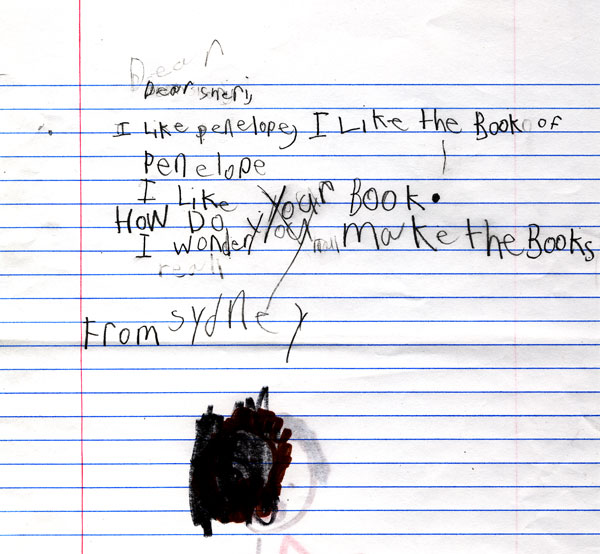 Dear
Dear sheri,
I Like penelope, I Like the Book of
Penelope
I Like Your BOOK.
HOW DO You make the BOOKS
I wonder
From sydney